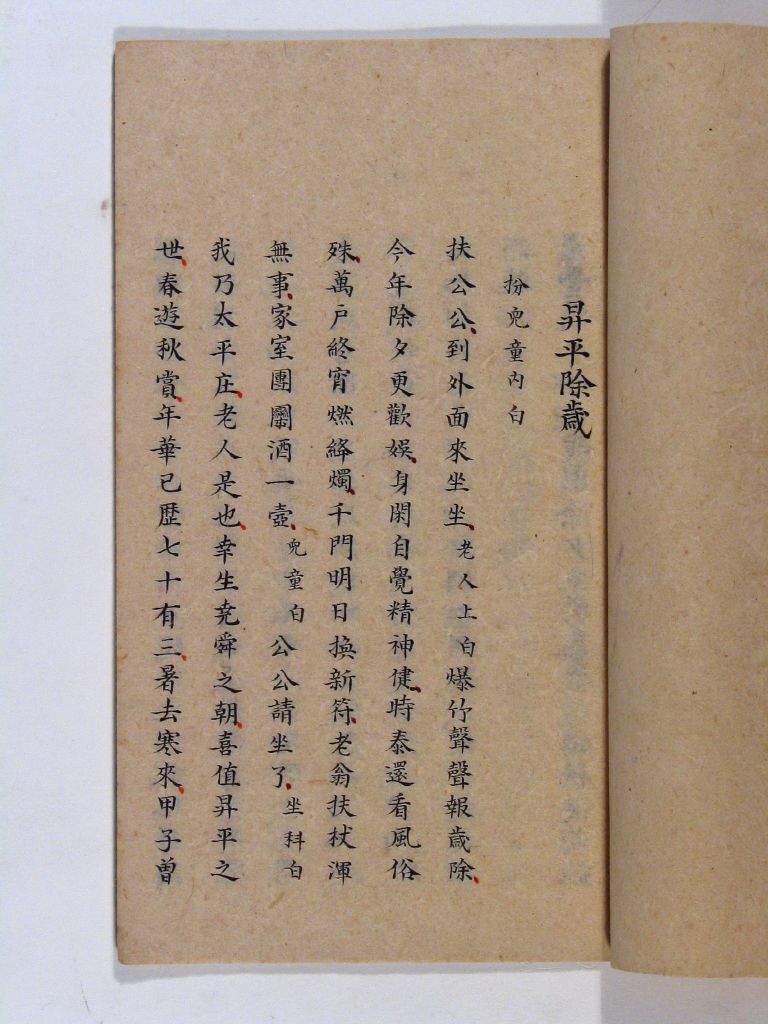 昇平除歳
扮兒童内白
扶公公到外面來坐坐老人上白爆竹聲聲報歲除
今年除夕更歡娛身閑自覺精神健時泰還看風俗
殊萬戸終宵燃絳燭千門明日換新符老翁扶杖渾
無事家室團圞酒一壺兒童白公公請坐了坐科白
我乃太平庄老人是也幸生堯舜之朝喜值昇平之
世春遊秋賞年華已歷七十有三暑去寒來甲子曽